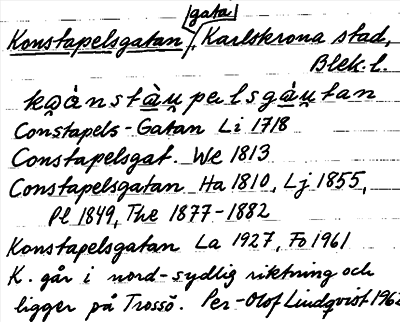 gata
Konstapelsgatan, Karlskrona stad,
Blek. l.
kωȧnstàu̯pelsgáu̯tan
Constapels-Gatan Li 1718
Constapelsgat. We 1813
Constapelsgatan Ha 1810, Lj 1855,
Pl 1849, The 1877-1882
Konstapelsgatan La 1927, Fo 1961
K. går i nord-sydlig riktning och
ligger på Trossö. Per-Olof Lindqvist 1962